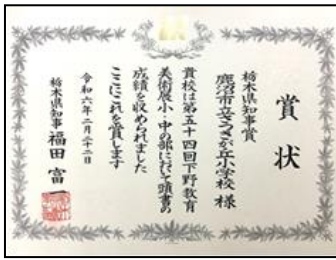 賞状
栃木県知事賞
鹿沼市立さつきが丘小学校 様
貴校は第五十四回下野教育
美術展小・中の部において頭書の
成績を収められました
ここにこれを賞します
令和六年二月二十二日
栃木県知事 福田 富一